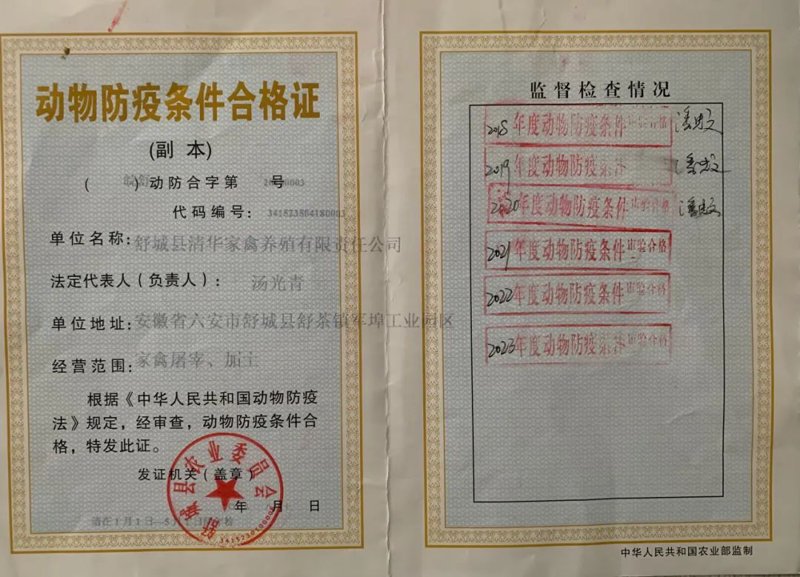 动物防疫条件合格证
(副 本)
( ) 动防合字第 号
代码编号: 341523504180003
单位名称: 舒城县清华家禽养殖有限责任公司
法定代表人(负责人): 汤光青
单位地址: 安徽省六安市舒城县舒茶镇军埠工业园区
经营范围: 家禽屠宰、加工
根据《中华人民共和国动物防疫
法》规定,经审查,动物防疫条件合
格,特发此证。
发证机关(盖章)
舒城县农业委员会
年 月 日
监督检查情况
2018年度动物防疫条件审验合格
2019年度动物防疫条件
2020年度动物防疫条件审验合格
2021年度动物防疫条件审验合格
2022年度动物防疫条件审验合格
2023年度动物防疫条件审验合格
中华人民共和国农业部监制